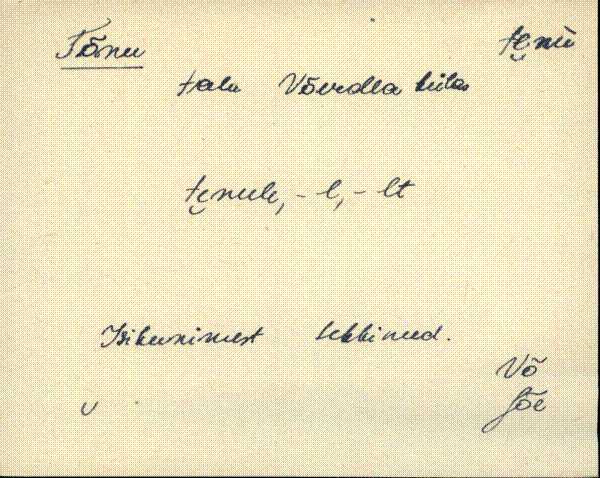 Tõnu tȩnù
talu Võerdla külas
tȩnule, -l, -lt
Isikunimest tekkinud.
Võ
Jõe